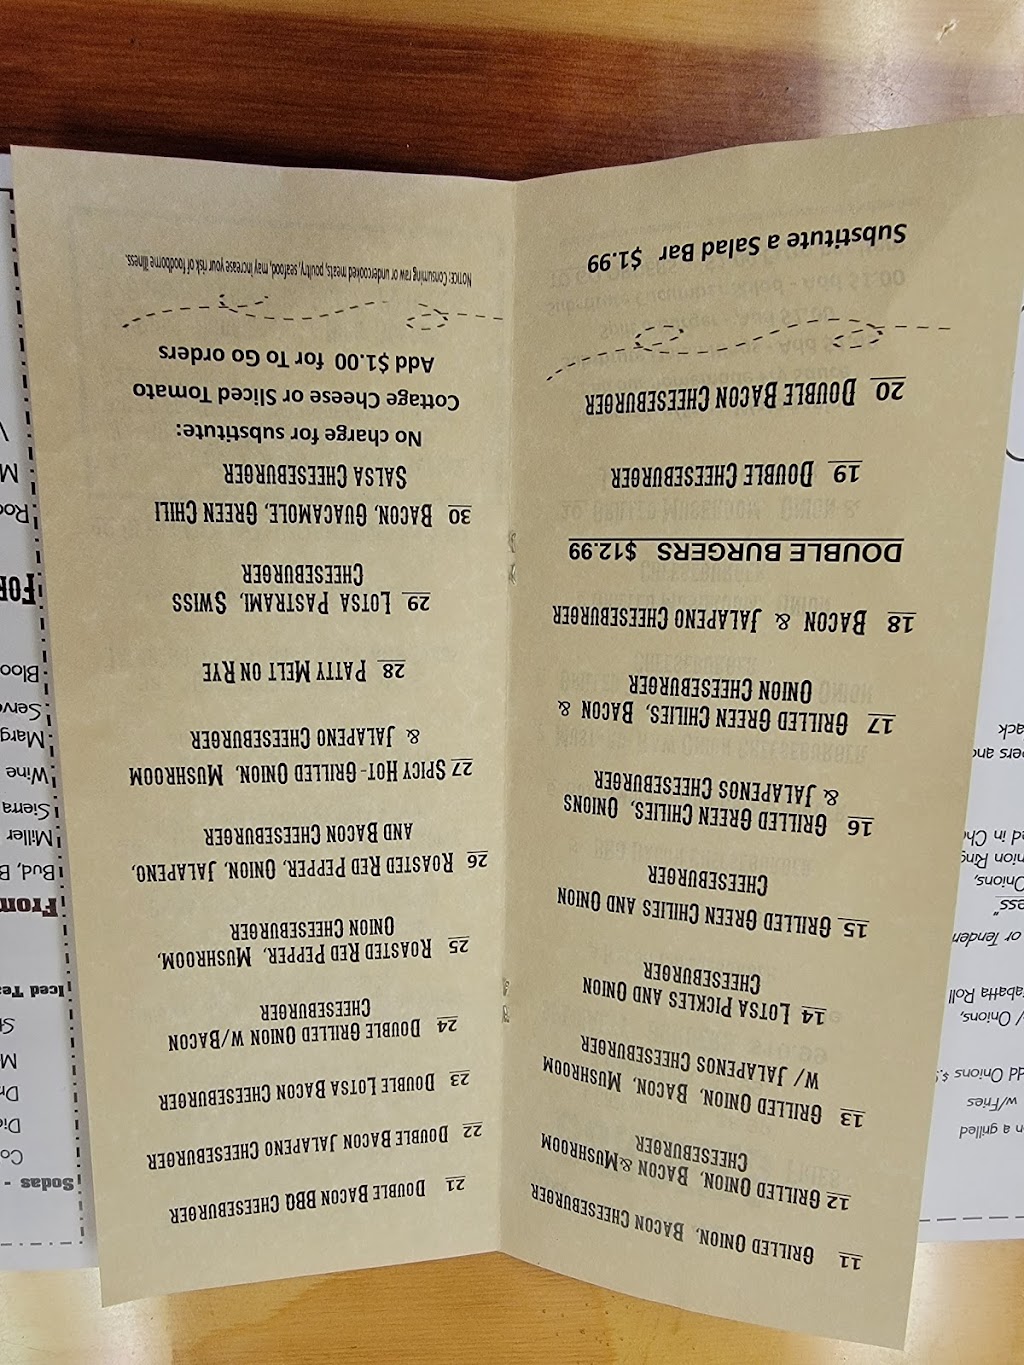 n a grilled
w/Fries
dd Onions $.
/ Onions,
abatta Roll
or Tender
ess"
Onions,
nion Ring
ed in Ch
pers and
ack
11 Grilled Onion, Bacon Cheeseburger
12 Grilled Onion, Bacon &Mushroom
Cheeseburger
13 Grilled Onion, Bacon, Mushroom
w/ Jalapenos Cheeseburger
14 Lotsa Pickles and Onion
Cheeseburger
15 Grilled Green Chilies and Onion
Cheeseburger
16 Grilled Green Chilies, Onions
& Jalapenos Cheeseburger
17 Grilled Green Chilies, Bacon &
Onion Cheeseburger
18 Bacon & Jalapeno Cheeseburger
DOUBLE BURGERS $12.99
19 Double Cheeseburger
20 Double Bacon Cheeseburger
Substitute a Salad Bar $1.99
21 Double Bacon BBQ Cheeseburger
22 Double Bacon Jalapeno Cheeseburger
23 Double Lotsa Bacon Cheeseburger
24 Double Grilled Onion w/Bacon
Cheeseburger
25 Roasted Red Pepper, Mushroom,
Onion Cheeseburger
26 Roasted Red Pepper, Onion, Jalapeno,
and Bacon Cheeseburger
27 Spicy Hot-Grilled Onion, Mushroom
& Jalapeno Cheeseburger
28 Patty Melt on Rye
29 Lotsa Pastrami, Swiss
Cheeseburger
30 Bacon, Guacamole, Green Chili
Salsa Cheeseburger
No charge for substitute:
Cottage Cheese or Sliced Tomato
Add $1.00 for To Go orders
Notice: Consuming raw or undercooked meats, poultry, seafood, may increase your risk of foodborne illness.
Sodas -
Co
Die
Dr
M
Iced Tea
From
Bud, B
Miller
Sierra
Wine
Marg
Serve
Bloo
For
Roo
M